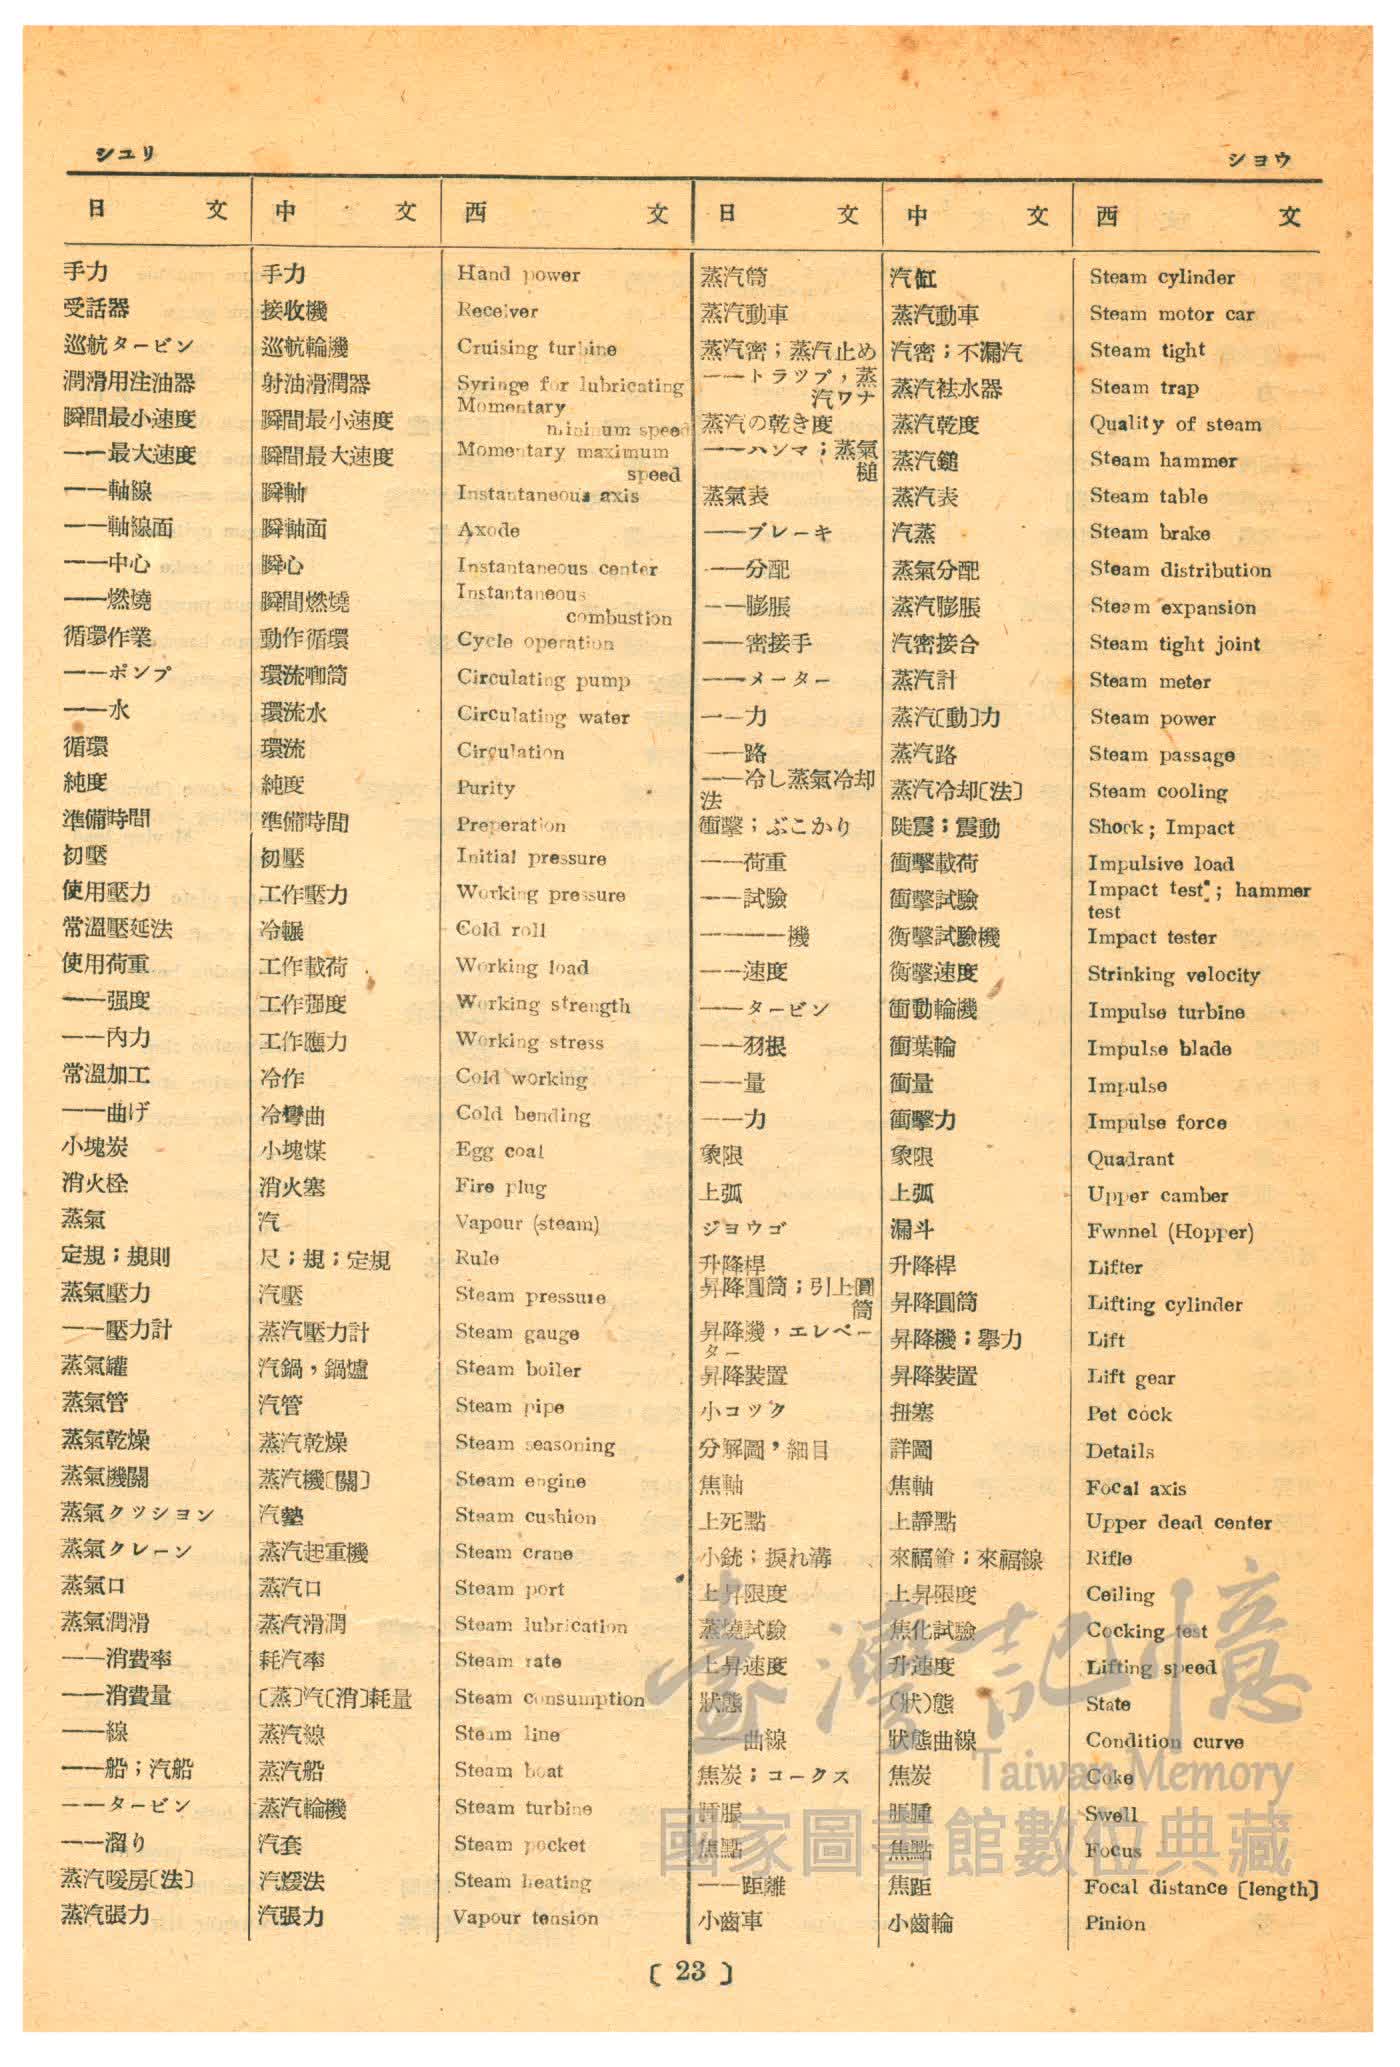 シユリ
ショウ
日文 中文 西文 日文 中文 西文
手力 手力 Hand power
受話器 接收機 Receiver
巡航タービン 巡航輪機 Cruising turbine
潤滑用注油器 射油滑潤器 Syringe for lubricating
瞬間最小速度 瞬間最小速度 Momentary minimum speed
——最大速度 瞬間最大速度 Momentary maximum speed
——軸線 瞬軸 Instantaneous axis
——軸線面 瞬軸面 Axode
——中心 瞬心 Instantaneous center
——燃燒 瞬間燃燒 Instantaneous combustion
循環作業 動作循環 Cycle operation
——ポンプ 環流唧筒 Circulating pump
——水 環流水 Circulating water
循環 環流 Circulation
純度 純度 Purity
準備時間 準備時間 Preperation
初壓 初壓 Initial pressure
使用壓力 工作壓力 Working pressure
常溫壓延法 冷輾 Cold roll
使用荷重 工作載荷 Working load
——强度 工作强度 Working strength
——內力 工作應力 Working stress
常溫加工 冷作 Cold working
——曲げ 冷彎曲 Cold bending
小塊炭 小塊煤 Egg coal
消火栓 消火塞 Fire plug
蒸氣 汽 Vapour (steam)
定規；規則 尺；規；定規 Rule
蒸氣壓力 汽壓 Steam pressure
——壓力計 蒸汽壓力計 Steam gauge
蒸氣罐 汽鍋，鍋爐 Steam boiler
蒸氣管 汽管 Steam pipe
蒸氣乾燥 蒸汽乾燥 Steam seasoning
蒸氣機關 蒸汽機〔關〕 Steam engine
蒸氣クツシヨン 汽墊 Steam cushion
蒸氣クレーン 蒸汽起重機 Steam crane
蒸氣口 蒸汽口 Steam port
蒸氣潤滑 蒸汽滑潤 Steam lubrication
——消費率 耗汽率 Steam rate
——消費量 〔蒸〕汽〔消〕耗量 Steam consumption
——線 蒸汽線 Steam line
——船；汽船 蒸汽船 Steam boat
——タービン 蒸汽輪機 Steam turbine
——溜り 汽套 Steam pocket
蒸汽暖房〔法〕 汽煖法 Steam heating
蒸汽張力 汽張力 Vapour tension
蒸汽筒 汽缸 Steam cylinder
蒸汽動車 蒸汽動車 Steam motor car
蒸汽密；蒸汽止め 汽密；不漏汽 Steam tight
——トラツプ，蒸汽ワナ 蒸汽祛水器 Steam trap
蒸汽の乾き度 蒸汽乾度 Quality of steam
——ハンマ；蒸氣槌 蒸汽鎚 Steam hammer
蒸氣表 蒸汽表 Steam table
——ブレーキ 汽蒸 Steam brake
——分配 蒸氣分配 Steam distribution
——膨脹 蒸汽膨脹 Steam expansion
——密接手 汽密接合 Steam tight joint
——メーター 蒸汽計 Steam meter
——力 蒸汽〔動〕力 Steam power
——路 蒸汽路 Steam passage
——冷し蒸氣冷却法 蒸汽冷却〔法〕 Steam cooling
衝擊；ぶこかり 陡震；震動 Shock; Impact
——荷重 衝擊載荷 Impulsive load
——試驗 衝擊試驗 Impact test; hammer test
————機 衡擊試驗機 Impact tester
——速度 衡擊速度 Strinking velocity
——タービン 衝動輪機 Impulse turbine
——羽根 衝葉輪 Impulse blade
——量 衝量 Impulse
——力 衝擊力 Impulse force
象限 象限 Quadrant
上弧 上弧 Upper camber
ジヨウゴ 漏斗 Fwnnel (Hopper)
升降桿 升降桿 Lifter
昇降圓筒；引上圓筒 昇降圓筒 Lifting cylinder
昇降機，エレベーター 昇降機；擧力 Lift
昇降裝置 昇降裝置 Lift gear
小コツク 扭塞 Pet cock
分解圖，細目 詳圖 Details
焦軸 焦軸 Focal axis
上死點 上靜點 Upper dead center
小銃；捩れ溝 來福鎗；來福線 Rifle
上昇限度 上昇限度 Ceiling
蒸燒試驗 焦化試驗 Cocking test
上昇速度 升速度 Lifting speed
狀態 (狀)態 State
——曲線 狀態曲線 Condition curve
焦炭；コークス 焦炭 Coke
腫脹 脹腫 Swell
焦點 焦點 Focus
——距離 焦距 Focal distance〔length〕
小齒車 小齒輪 Pinion
〔 23 〕
臺灣記憶
Taiwan Memory
國家圖書館數位典藏